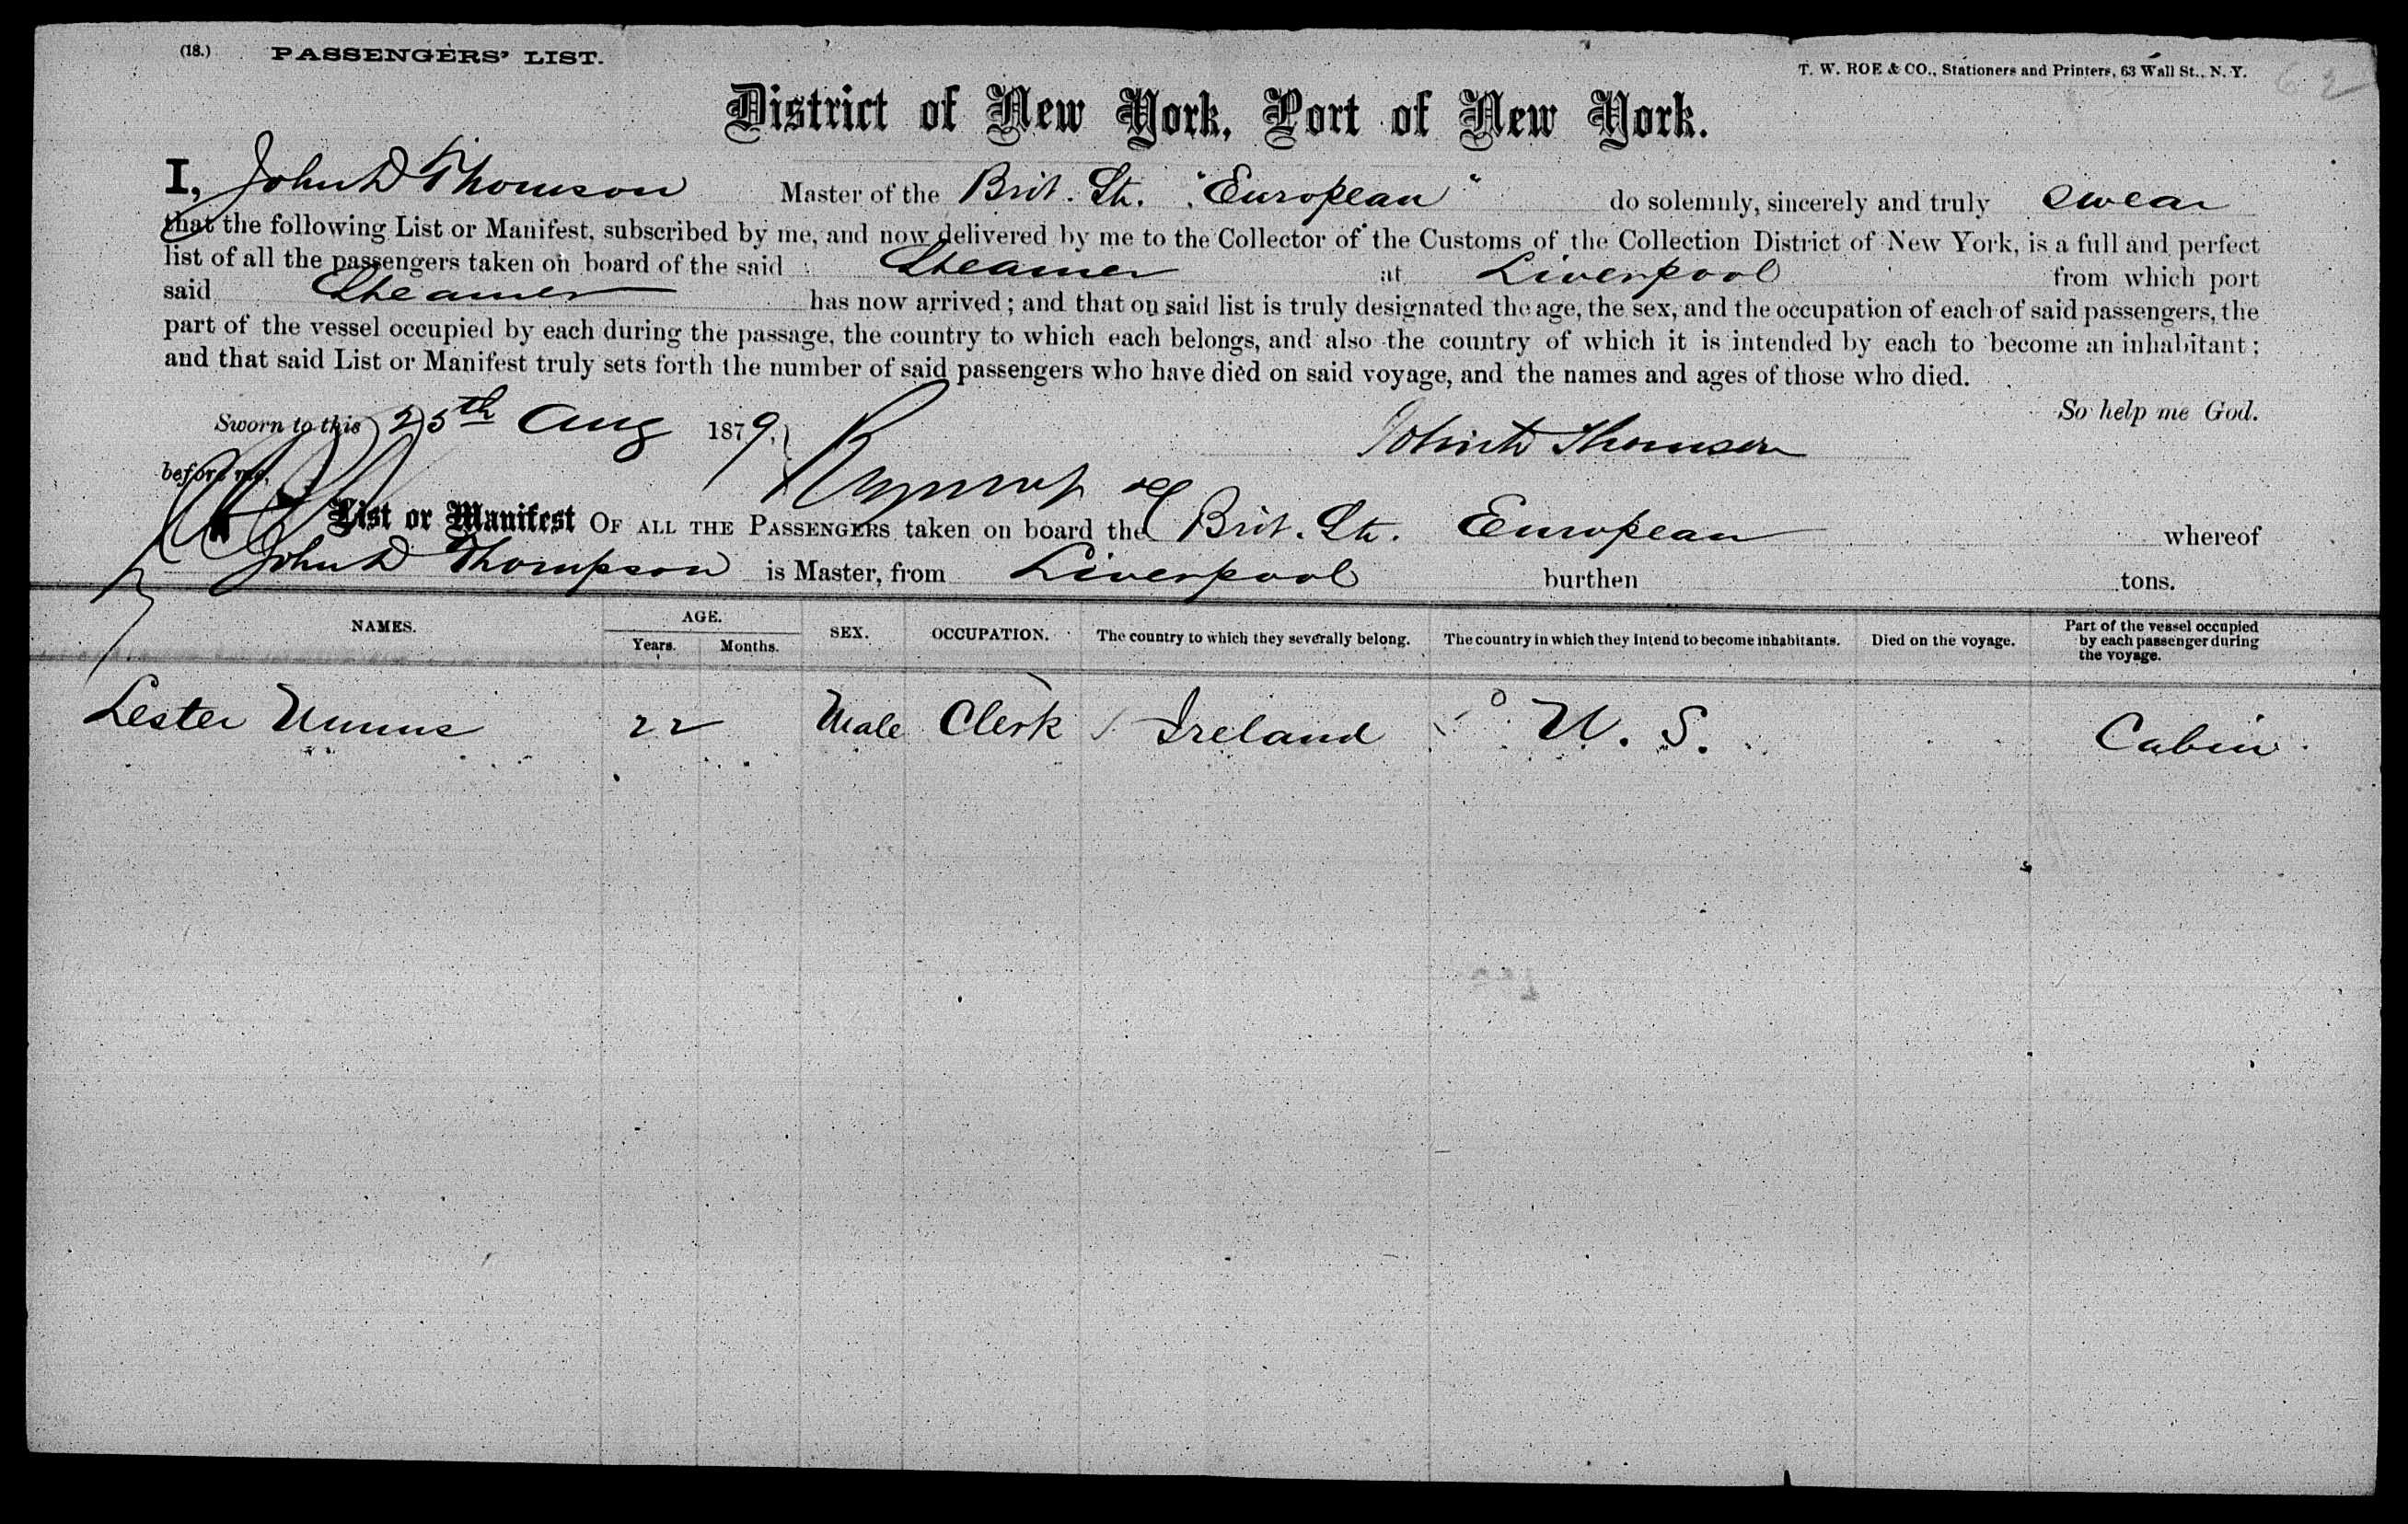 (18.) PASSENGERS' LIST.
T. W. ROE & CO., Stationers and Printers, 63 Wall St., N. Y. 62
District of New York, Port of New York.
I, John D Thomson Master of the Brit. Str. "European" do solemnly, sincerely and truly swear
that the following List or Manifest, subscribed by me, and now delivered by me to the Collector of the Customs of the Collection District of New York, is a full and perfect
list of all the passengers taken on board of the said Steamer at Liverpool from which port
said Steamer has now arrived; and that on said list is truly designated the age, the sex, and the occupation of each of said passengers, the
part of the vessel occupied by each during the passage, the country to which each belongs, and also the country of which it is intended by each to become an inhabitant;
and that said List or Manifest truly sets forth the number of said passengers who have died on said voyage, and the names and ages of those who died.
So help me God.
Sworn to this 25th Aug 1879,
John D Thomson
before me,
List or Manifest OF ALL THE PASSENGERS taken on board the Brit. Str. European whereof
John D Thompson is Master, from Liverpool burthen tons.
NAMES. AGE. SEX. OCCUPATION. The country to which they severally belong. The country in which they intend to become inhabitants. Died on the voyage. Part of the vessel occupied by each passenger during the voyage.
Years. Months.
Lester 22 Male Clerk Ireland U. S. Cabin